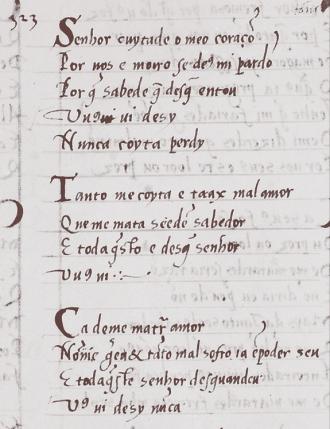 323
Senhor cuytado o meo coraço
Por uos e moiro se deꝯ mi pardo
Por q̃ sabede q̃ desq̃ entou
Vuꝯ ui desy
Nunca coyta perdy
Tanto me coyta e mal amor
Que me mata seede sabedor
E toda q̃sto e desq̃ senhor
Vuꝯ ui
Ca de me matar amor
q̃ eu & tãto mal sofro ia ẽ poder seu
E toda q̃sto senhor des
Vuꝯ ui desy nũca